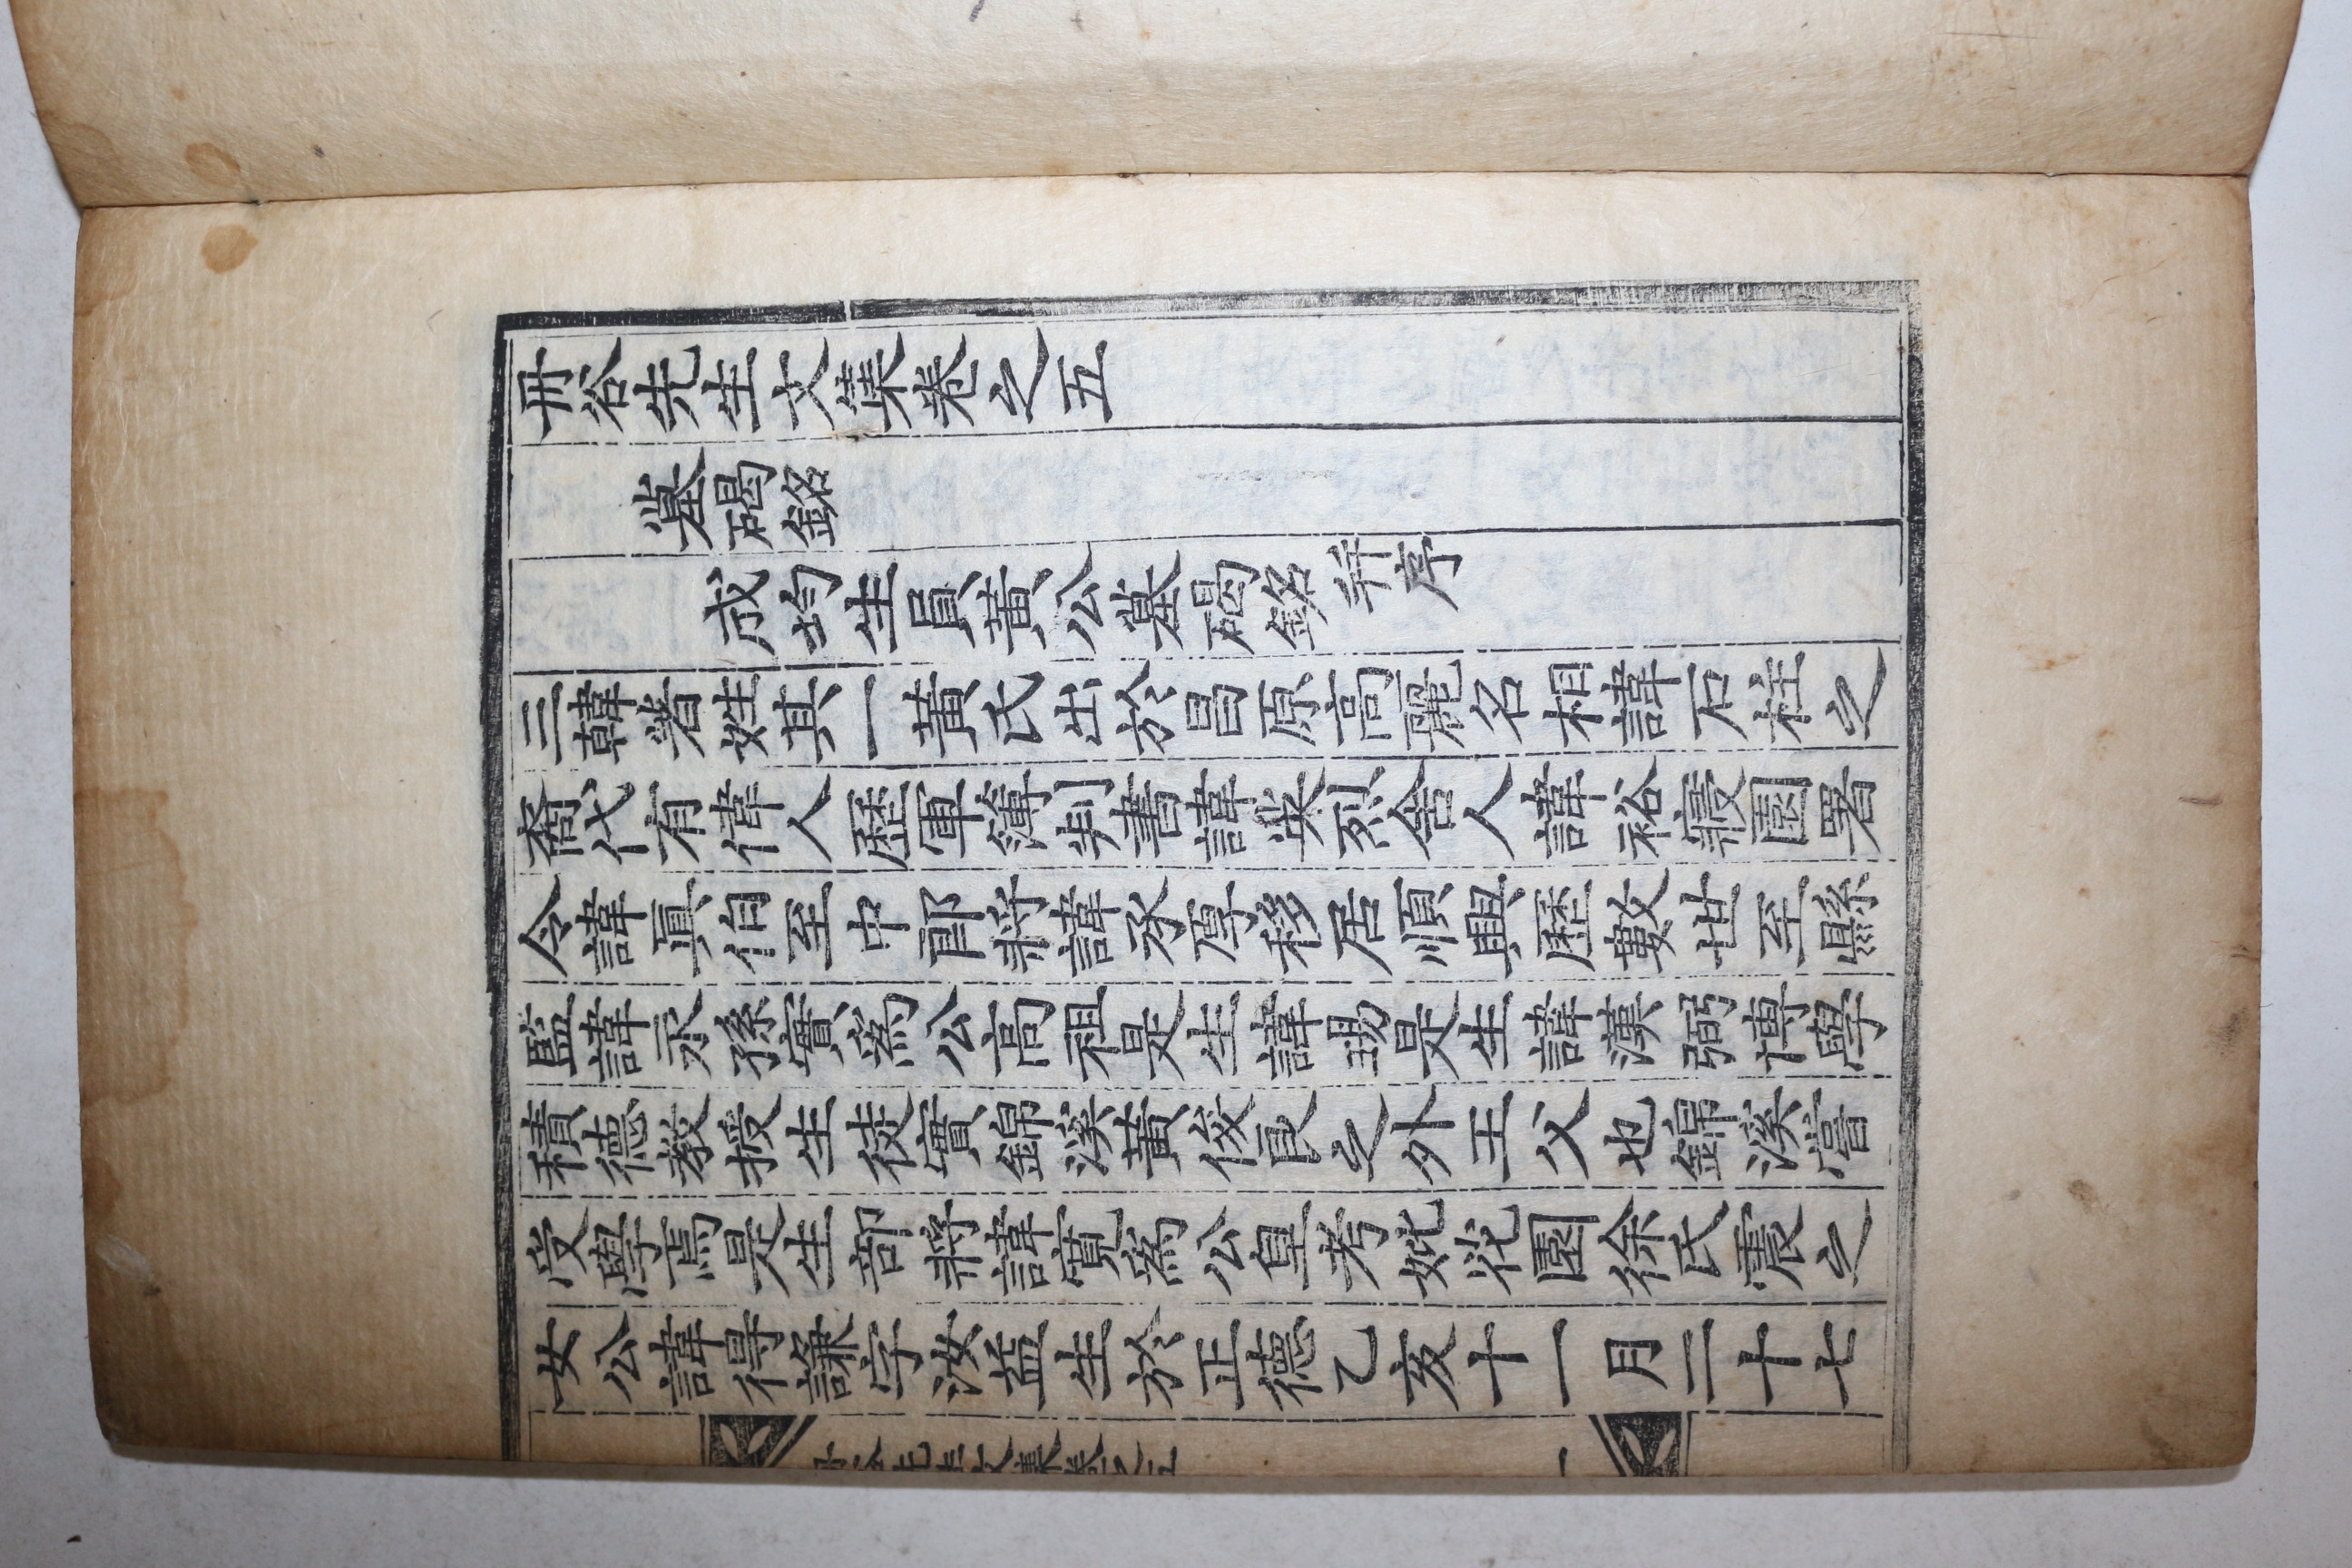 冊谷先生文集卷之五
墓碣銘
成均生員黃公墓碣銘 幷序
三韓著姓其一黃氏出於昌原高麗名相諱石柱之
裔代有偉人歷軍簿判書諱英烈舍人諱裕寢園署
令諱眞伯至中郎將諱承厚移居順興歷數世至縣
監諱永孫實爲公高祖是生諱瑒是生諱漢弼博學
積德教授生徒實錦溪黃俊良之外王父也錦溪嘗
受學焉是生部將諱寬爲公皇考妣花園徐氏震之
女公諱得謙字汝益生於正德乙亥十一月二十七
冊谷先生文集卷之五
一